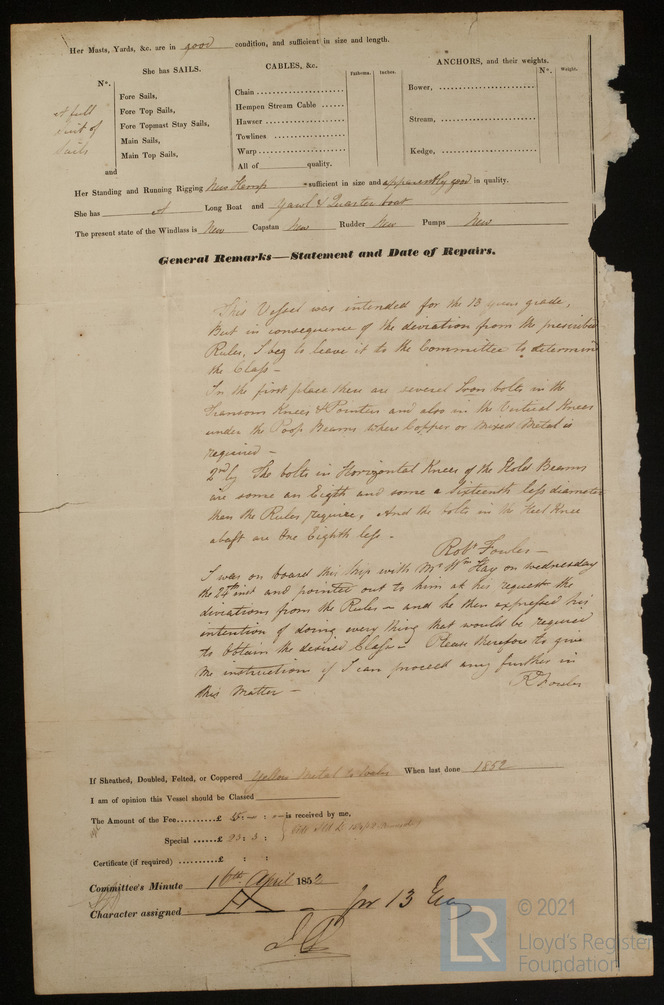 Her Masts, Yards, &c. are in good condition, and sufficient in size and length.
She has SAILS.
CABLES, &c.
Fathoms.
Inches.
ANCHORS, and their weights.
Nº.
Weight.
Nº.
A full
suit of
Sails
Fore Sails,
Fore Top Sails,
Fore Topmast Stay Sails,
Main Sails,
Main Top Sails,
and
Chain
Hempen Stream Cable
Hawser
Towlines
Warp
All of quality.
Bower,
Stream,
Kedge,
Her Standing and Running Rigging New Hemp sufficient in size and apparently good in quality.
She has A Long Boat and Yawl & Quarter boat
The present state of the Windlass is New Capstan New Rudder New Pumps New
General Remarks—Statement and Date of Repairs.
This Vessel was intended for the 13 years grade,
But in consequence of the deviation from the prescribed
Rules, I beg to leave it to the Committee to determine
the Class -
In the first place there are several Iron bolts in the
Transom Knees & Pointers and also in the Vertical Knees
under the Poop Beams where Copper or mixed Metal is
required -
2ndly The bolts in Horizontal Knees of the Hold Beams
are some an Eigth and some a Sixteenth less diameter
than the Rules require, And the bolts in the Heel Knee
abaft are One Eighth less.
Robt Fowles -
I was on board this Ship with Mr Wm Hay on Wednesday
the 24th inst and pointed out to him at his request the
diviations from the Rules - and he then expressed his
intention of doing every thing that would be required
to obtain the desired Class - Please therefore to give
me instruction if I can proceed any further in
this Matter -
R Fowles
If Sheathed, Doubled, Felted, or Coppered Yellow Metal to When last done 1852
I am of opinion this Vessel should be Classed
The Amount of the Fee £ : - : - is received by me,
Special £ 23 : 3 :
Certificate (if required) £ : :
Committee's Minute 16th April 1852
Character assigned A for 13
© 2021
LR
Lloyd's Register
Foundation